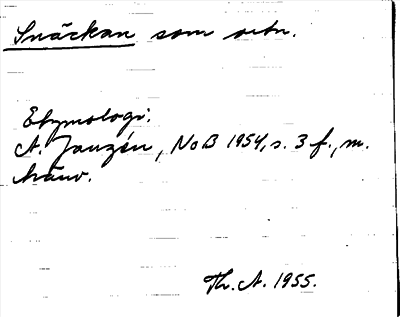 Snäckan som ortn.
Etymologi:
A. Janzén, NoB 1954, s. 3 f., m.
hänv.
Th. A. 1955.